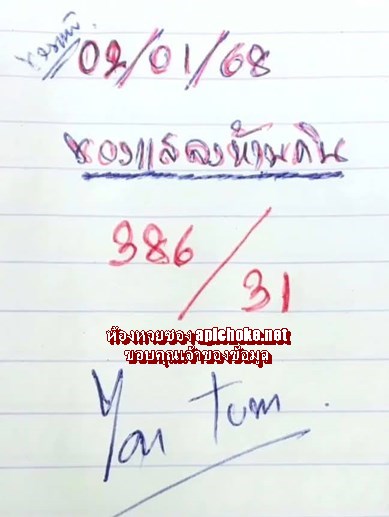 02/01/68
ของแสลงห้ามกิน
386/31
ห้องหวยซอง apichoke.net
ขอบคุณเจ้าของข้อมูล